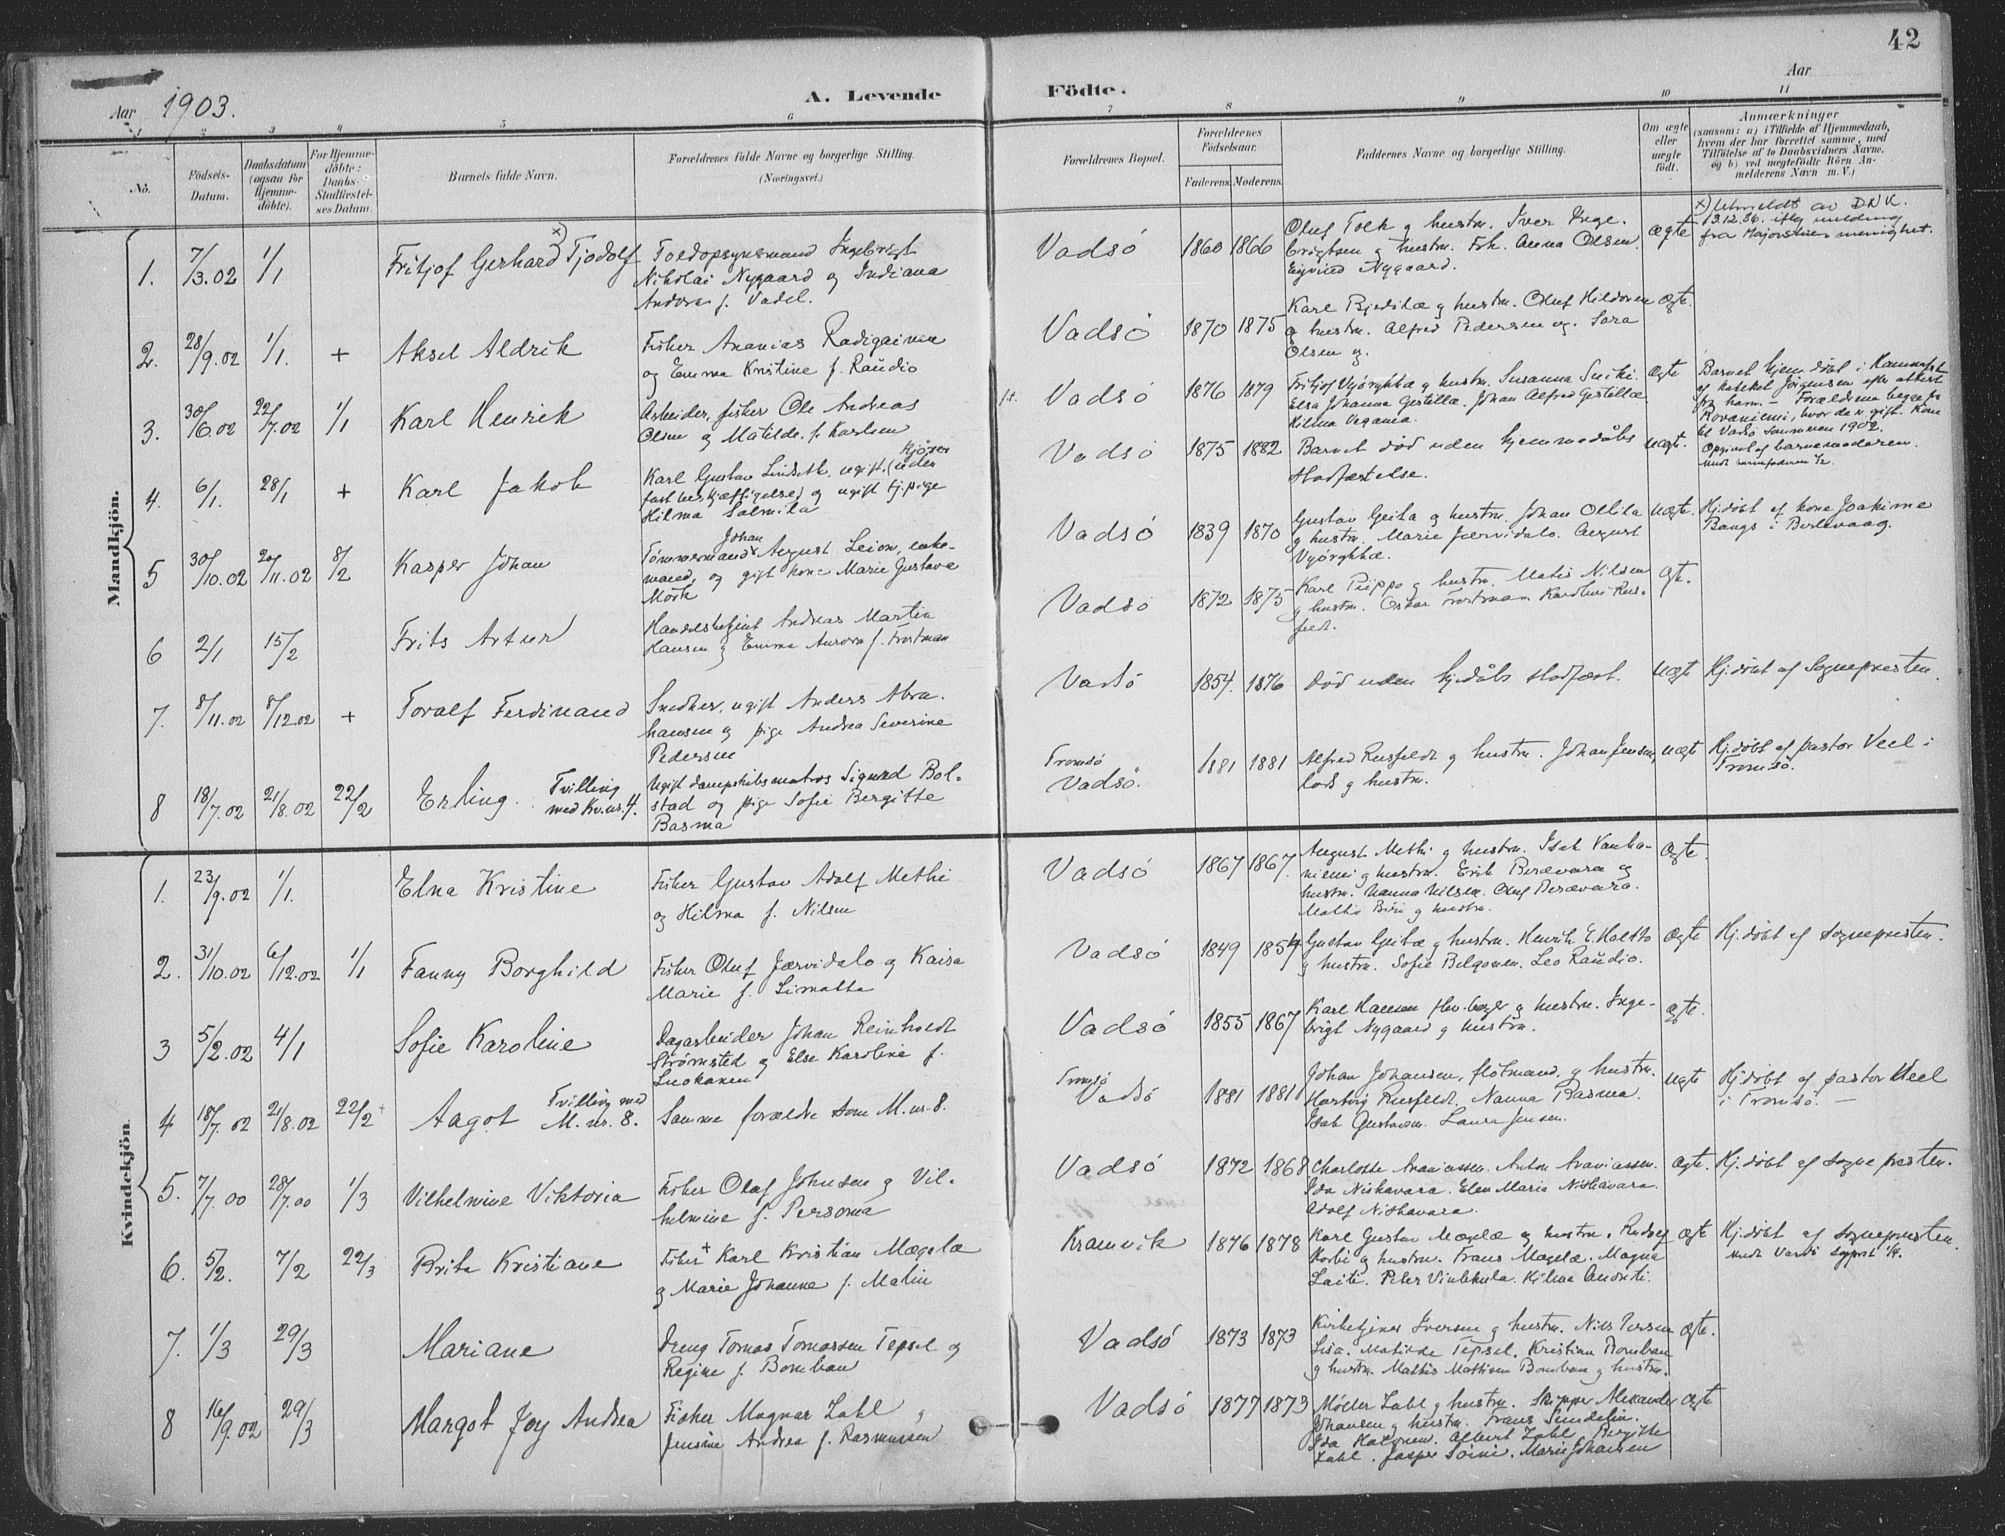 42
Aar 1903.
A. Levende Födte.
Aar
1 2 3 4 5 6 7 8 9 10 11
No.
Födsels-
Datum.
Daabsdatum
(ogsaa for
Hjemme-
döbte).
For Hjemme-
döbte:
Daabs-
Stadfæstel-
ses Datum.
Barnets fulde Navn.
Forældrenes fulde Navne og borgerlige Stilling.
(Næringsvei.)
Forældrenes Bopæl.
Forældrenes
Födselsaar.
Faderens. Moderens.
Faddernes Navne og borgerlige Stilling.
Om ægte
eller
uægte
födt.
Anmærkninger
(saasom: a) i Tilfælde af Hjemmedaab,
hvem der har forrettet samme, med
Tilföielse af to Daabsvidners Navne,
og b) ved uegtefödte Börn An-
melderens Navn m. V.)
Mandkjön.
1. 7/3.02 1/1 Fritjof Gerhard x) Tjodolf
Toldopsynsmand Ingebrigt
Nikolai Nygaard og Indiana
Andora f. Vadel.
Vadsö 1860 1866
Oluf Tolk g hustru. Iver Inge-
brigtsen g hustru. Frk. Anna Olsen
Eyvind Nygaard.
ægte
x) Utmeldt av DNK.
13.12.36. iflg melding
fra Majorstuen menighet.
2. 28/9.02 1/1. + Aksel Aldrik
Fisker Ananias Radigainen
og Emma Kristine f. Raudio
Vadsö 1870 1875
Karl g hustru. Oluf Hildonen
g hustru. Alfred Pedersen og. Sara
Olsen
ægte.
3. 30/6.02 22/7.02 1/1 Karl Henrik
Arbeider, fisker Ole Andreas
Olsen og Matilde f. Karlsen
Vadsö 1876 1879
Fritjof g hustru. Susanna
Elsa Johanna Johan Alfred
Hilma
ægte
Barnet hjemdöbt i Hammerfest
af kateket Jörgensen efter attest
fra ham. — Forældrene begge fra
Rovaniemi, hvor de er gift. Kom
til Vadsö sommeren 1902.
4. 6/1. 28/1 + Karl Jakob
Karl Gustav ugift, (uden
fast beskjæftigelse) og ugift tj.pige
Hilma Salmila
Vadsö 1875 1882
Barnet död uden hjemmedåbs
stadfæstelse.
uægte.
Opgivet af barnemoderen.
5 30/10.02 20/11.02 8/2 Kasper Johan
Johan
Tömmermand August Leion, enke-
mand, og gift kone Marie Gustava
Vadsö 1839 1870
Gustav Geita g hustru. Johan Ollila
g hustru. Marie Jærvidalo. August
uægte.
Hj.döbt af kone Joakime
Bangs i Berlevaag.
6 2/1 15/2 Frits Artur
Handelsbetjent Andreas Martin
Hansen g Emma Aurora f. Trostman
Vadsö 1872 1875
Karl Piippo g hustru. Matis Nilsen
g hustru. Oskar Trostman Karoline Rus-
feldt.
ægte.
7. 8/11.02 8/12.02 + Toralf Ferdinand
Snedker, ugift Anders Abra-
hamsen og pige Andrea Severine
Pedersen
Vadsö 1854. 1876
Död uden hj.dåbs stadfæst.
uægte
Hj.döbt af Sognepresten.
8 18/7.02 21/8.02 22/2 Erling. Tvilling
med Kv.nr. 4.
Ugift dampskibsmatros Sigurd Bol-
stad og pige Sofie Bergitte
Basma
Tromsö
Vadsö. 1881 1881
Alfred Rusfeldt g hustru. Johan Jensen,
lods g hustru.
uægte
Hj.döbt af pastor Veel i
Tromsö.
Kvindekjön.
1. 23/9.02 1/1. Elna Kristine
Fisker Gustav Adolf Methi
og Hilma f. Nilsen
Vadsö 1867 1867.
August Methi g hustru. Isak Vanha-
niemi g hustru. Erik Peræraara og
hustru. Nanna Nilsen. Oluf Peræraara.
Mattis g hustru.
ægte.
2. 31/10.02 6/12.02 1/1 Fanny Borghild
Fisker Oluf Jærvidalo og Kaisa
Marie f. Limatta
Vadsö 1849 1854
Gustav g hustru. Henrik E. Haltto
g hustru. Sofie Leo Raudio.
ægte
Hj.döbt af sognepresten.
3 5/2.02 4/1 Sofie Karoline
Dagarbeider Johan Reinholdt
Strömsted og Else Karoline f.
Luokanen
Vadsö 1855 1867
Karl Hansen g hustru. Inge-
brigt Nygaard g hustru.
ægte.
4 18/7.02 21/8.02 22/2 Aagot Tvilling med
M.nr. 8.
Samme forældre som M.nr. 8.
Tromsö
Vadsö 1881 1881
Johan Johansen, g hustru.
Hartvig Rusfeldt. Nanna Basma.
Isak Gustavsen. Laura Jensen.
uægte
Hj.döbt af pastor Veel
i Tromsö. —
5. 7/7.00 28/7.00 1/3 Vilhelmine Viktoria
Fisker Olaf Johnsen g Vil-
helmine f. Persona
Vadsö 1872 1868
Charlotte Ananiassen. Anton Ananiassen.
Ida Niskavara. Elen Maria Niskavara.
Adolf Niskavara.
ægte.
Hj.döbt af sognepresten.
6. 5/2. 7/2 22/3 Brita Kristiane
Fisker + Karl Kristian Mægelæ
g Marie Johanne f. Matin
Kramvik 1876 1878
Karl Gustav Mægelæ og hustru.
Korbi g hustru. Frans Mægelæ. Magna
Laiti. Peter Hilma
ægte
Hj.döbt af sognepresten.
7. 1/3 29/3 Mariane
Dreng Tomas Tomassen Tepsel og
Regine f. Bomban
Vadsö 1873 1873
Kirketjener Iversen g hustru. Nils Persen
Lisa. Matilde Tepsel. Kristian Bomban
g hustru. Mathis Mathisen Bomban g hustru.
ægte.
8 16/9.02 29/3 Margot Joy Andrea
Fisker Magnus Zahl g
Jensine Andrea f. Rasmussen
Vadsö 1877 1873
Möller Zahl g hustru. Skipper Alexander
Johansen g hustru. Frans Sundelin.
Ida Halonen. Albert Zahl. Bergitte
Zahl. Jasper Soini. Marie Johansen
ægte